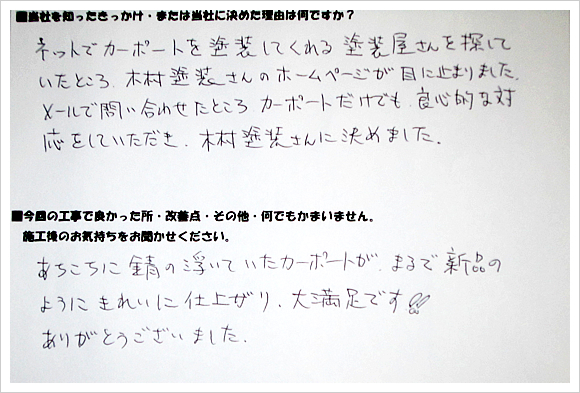 ■当社を知ったきっかけ・または当社に決めた理由は何ですか?
ネットでカーポートを塗装してくれる塗装屋さんを探して
いたところ、木村塗装さんのホームページが目に止まりました。
メールで問い合わせたところカーポートだけでも、良心的な対
応をしていただき、木村塗装さんに決めました。
■今回の工事で良かった所・改善点・その他・何でもかまいません。
施工後のお気持ちをお聞かせください。
あちこちに錆の浮いていたカーポートが、まるで新品の
ようにきれいに仕上がり、大満足です!!
ありがとうございました。